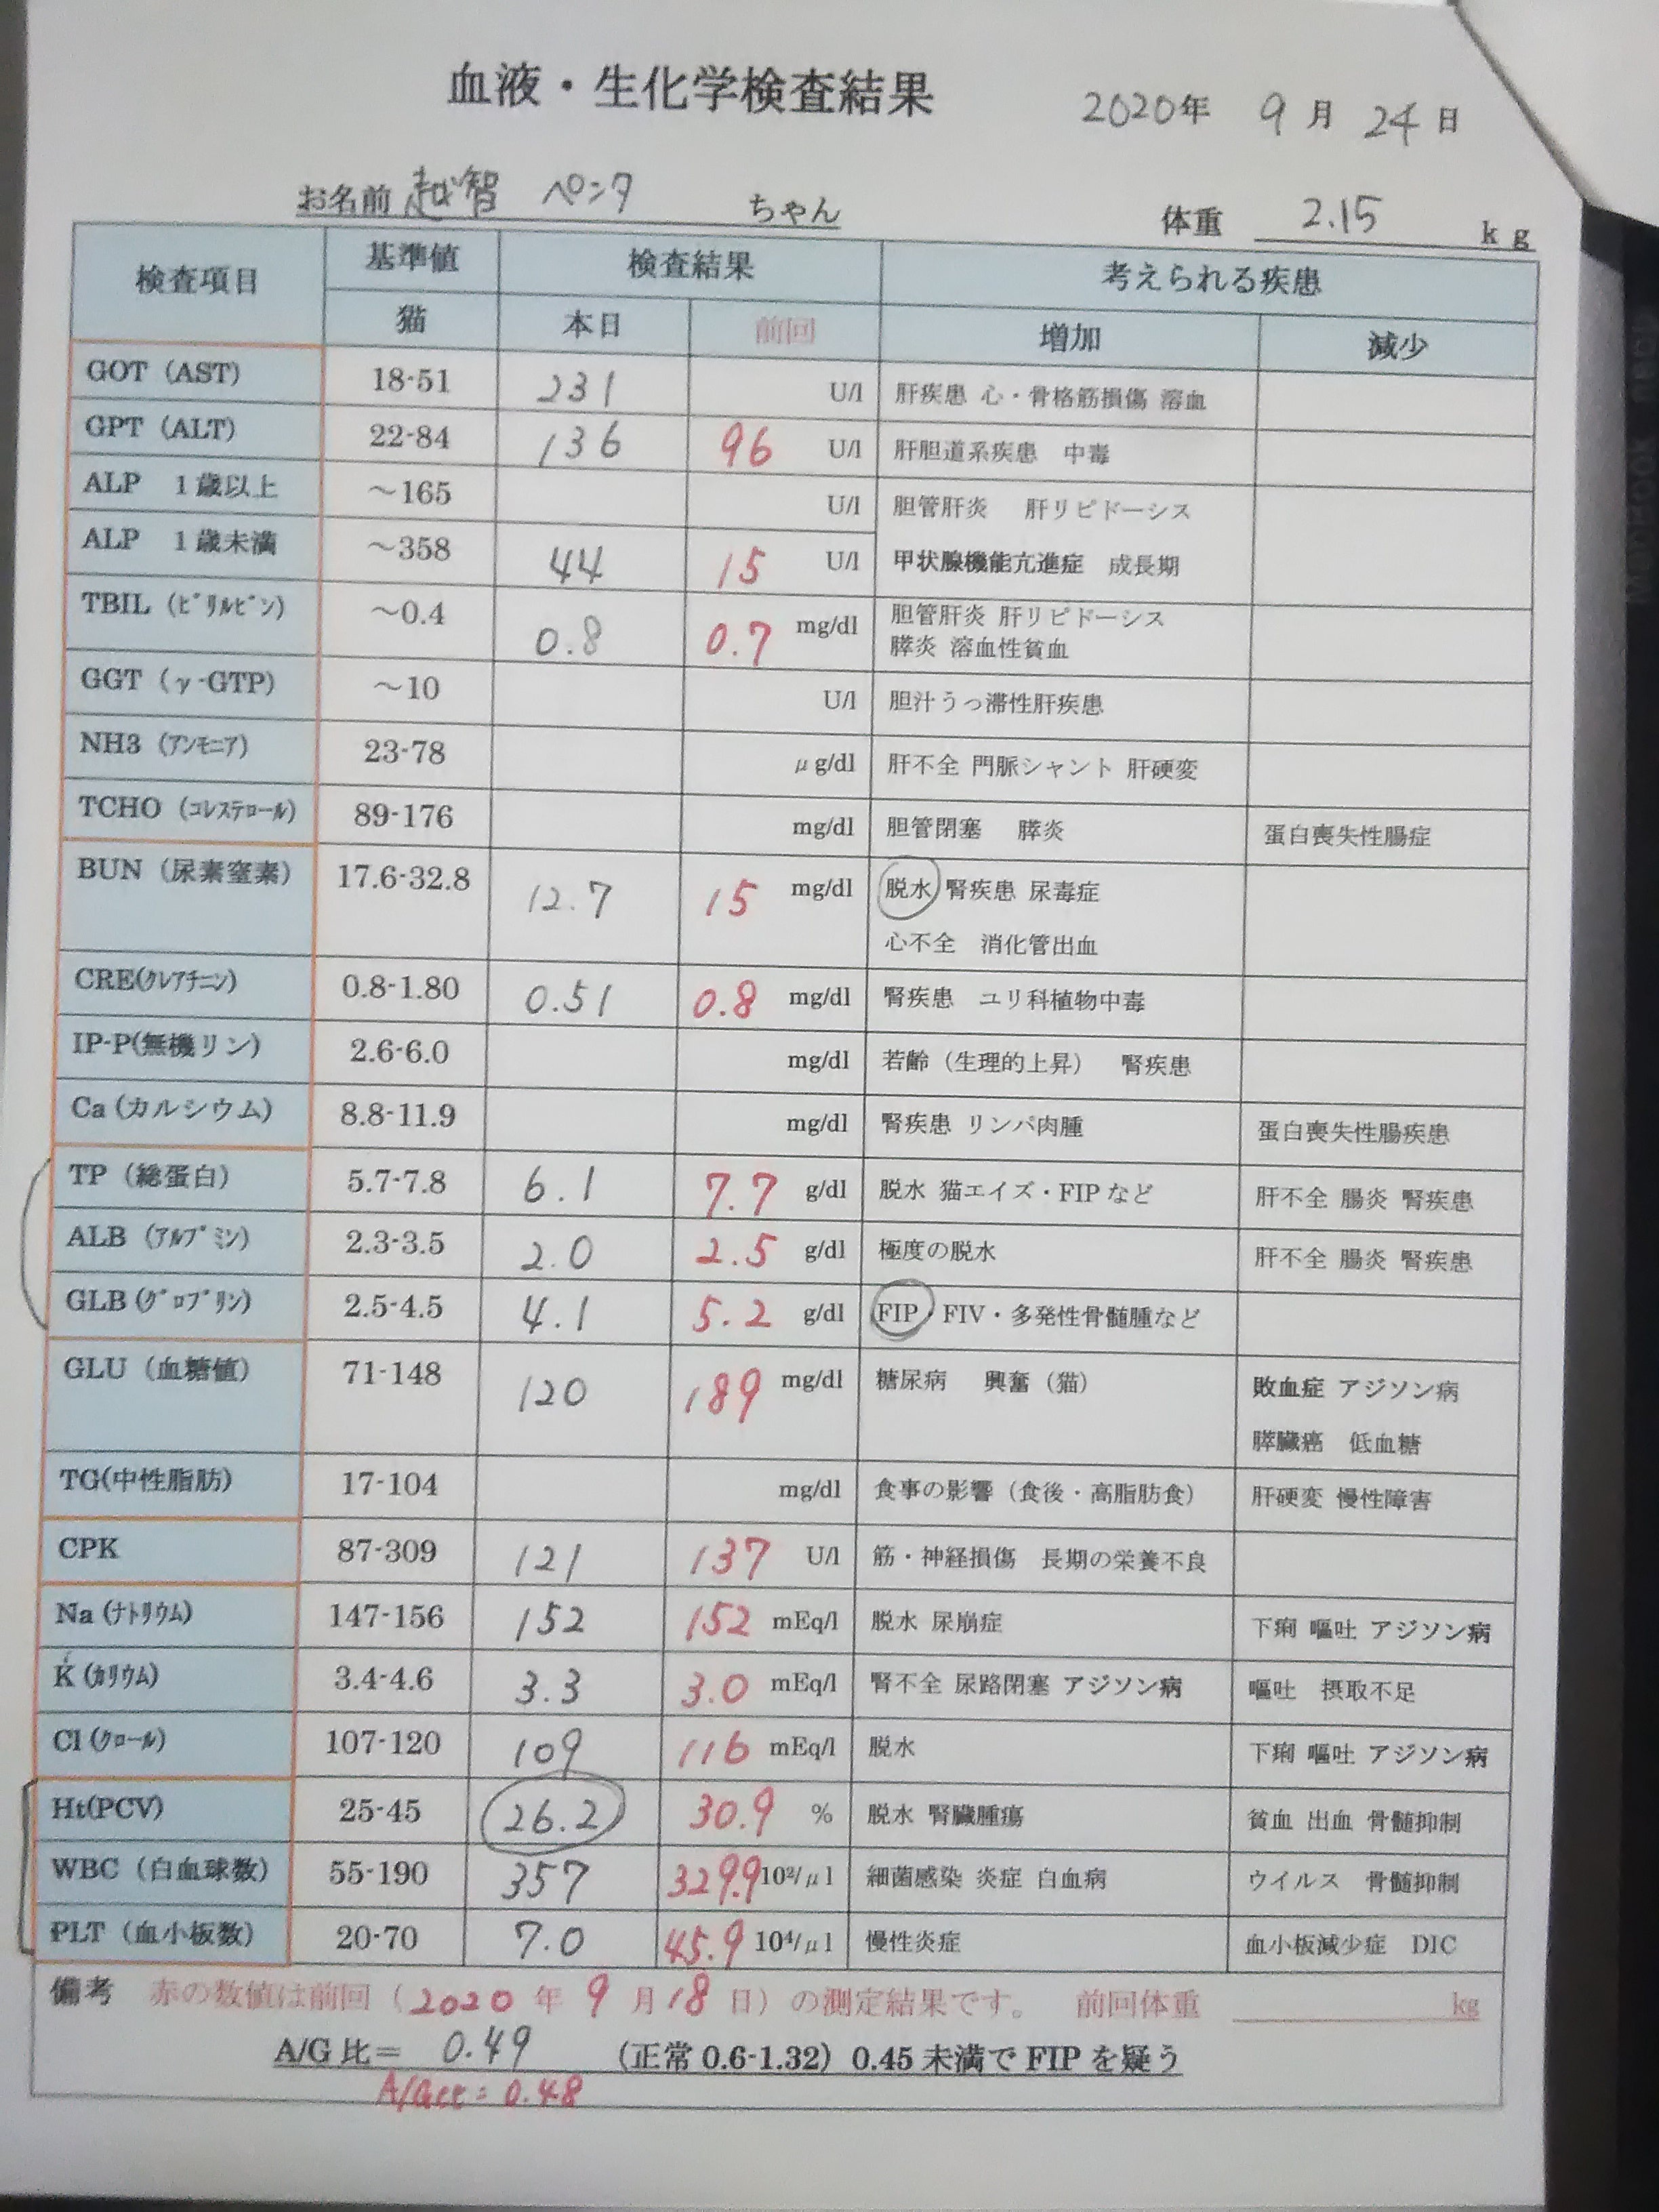 血液・生化学検査結果
2020年 9月 24日
お名前 越智 ペンタ ちゃん 体重 2.15 kg
検査項目 基準値 検査結果 考えられる疾患
猫 本日 前回 増加 減少
GOT (AST) 18-51 231 U/l 肝疾患 心・骨格筋損傷 溶血
GPT (ALT) 22-84 136 96 U/l 肝胆道系疾患 中毒
ALP 1歳以上 ～165 U/l 胆管肝炎 肝リピドーシス
ALP 1歳未満 ～358 44 15 U/l 甲状腺機能亢進症 成長期
TBIL (ﾋﾞﾘﾙﾋﾞﾝ) ～0.4 0.8 0.7 mg/dl 胆管肝炎 肝リピドーシス
膵炎 溶血性貧血
GGT (γ-GTP) ～10 U/l 胆汁うっ滞性肝疾患
NH3 (ｱﾝﾓﾆｱ) 23-78 μg/dl 肝不全 門脈シャント 肝硬変
TCHO (ｺﾚｽﾃﾛｰﾙ) 89-176 mg/dl 胆管閉塞 膵炎 蛋白喪失性腸症
BUN (尿素窒素) 17.6-32.8 12.7 15 mg/dl 脱水 腎疾患 尿毒症
心不全 消化管出血
CRE(ｸﾚｱﾁﾆﾝ) 0.8-1.80 0.51 0.8 mg/dl 腎疾患 ユリ科植物中毒
IP-P(無機リン) 2.6-6.0 mg/dl 若齢（生理的上昇） 腎疾患
Ca (カルシウム) 8.8-11.9 mg/dl 腎疾患 リンパ肉腫 蛋白喪失性腸疾患
TP (総蛋白) 5.7-7.8 6.1 7.7 g/dl 脱水 猫エイズ・FIPなど 肝不全 腸炎 腎疾患
ALB (ｱﾙﾌﾞﾐﾝ) 2.3-3.5 2.0 2.5 g/dl 極度の脱水 肝不全 腸炎 腎疾患
GLB (ｸﾞﾛﾌﾞﾘﾝ) 2.5-4.5 4.1 5.2 g/dl FIP FIV・多発性骨髄腫など
GLU (血糖値) 71-148 120 189 mg/dl 糖尿病 興奮（猫） 敗血症 アジソン病
膵臓癌 低血糖
TG(中性脂肪) 17-104 mg/dl 食事の影響（食後・高脂肪食） 肝硬変 慢性障害
CPK 87-309 121 137 U/l 筋・神経損傷 長期の栄養不良
Na (ﾅﾄﾘｳﾑ) 147-156 152 152 mEq/l 脱水 尿崩症 下痢 嘔吐 アジソン病
K (ｶﾘｳﾑ) 3.4-4.6 3.3 3.0 mEq/l 腎不全 尿路閉塞 アジソン病 嘔吐 摂取不足
Cl (ｸﾛｰﾙ) 107-120 109 116 mEq/l 脱水 下痢 嘔吐 アジソン病
Ht(PCV) 25-45 26.2 30.9 % 脱水 腎臓腫瘍 貧血 出血 骨髄抑制
WBC (白血球数) 55-190 357 329.9 10²/μl 細菌感染 炎症 白血病 ウイルス 骨髄抑制
PLT (血小板数) 20-70 7.0 45.9 10⁴/μl 慢性炎症 血小板減少症 DIC
備考 赤の数値は前回（2020年 9月18日）の測定結果です。 前回体重 kg
A/G比＝ 0.49 （正常 0.6-1.32）0.45未満でFIPを疑う
A/G比＝0.48